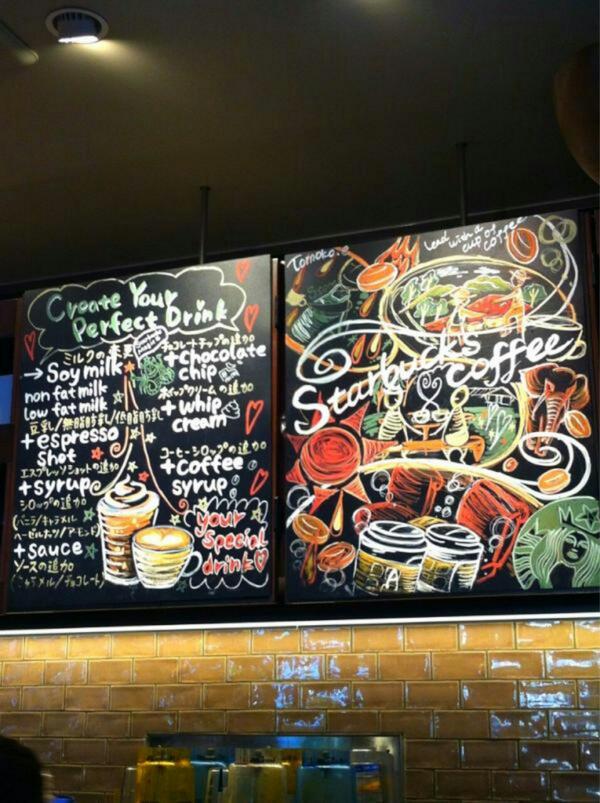 Create Your
Perfect Drink
ミルクの変更
→ Soy milk
non fat milk
low fat milk
豆乳/無脂肪乳/低脂肪乳
+ espresso
shot
エスプレッソショットの追加
+ syrup
シロップの追加
(バニラ/キャラメル
ヘーゼルナッツ/アーモンド)
+ sauce
ソースの追加
(キャラメル/チョコレート)
チョコレートチップの追加
+ chocolate
chip
ホイップクリームの追加
+ whip
cream
コーヒーシロップの追加
+ coffee
syrup
your
special
drink
Lead with a
cup of
coffee
Starbucks
coffee